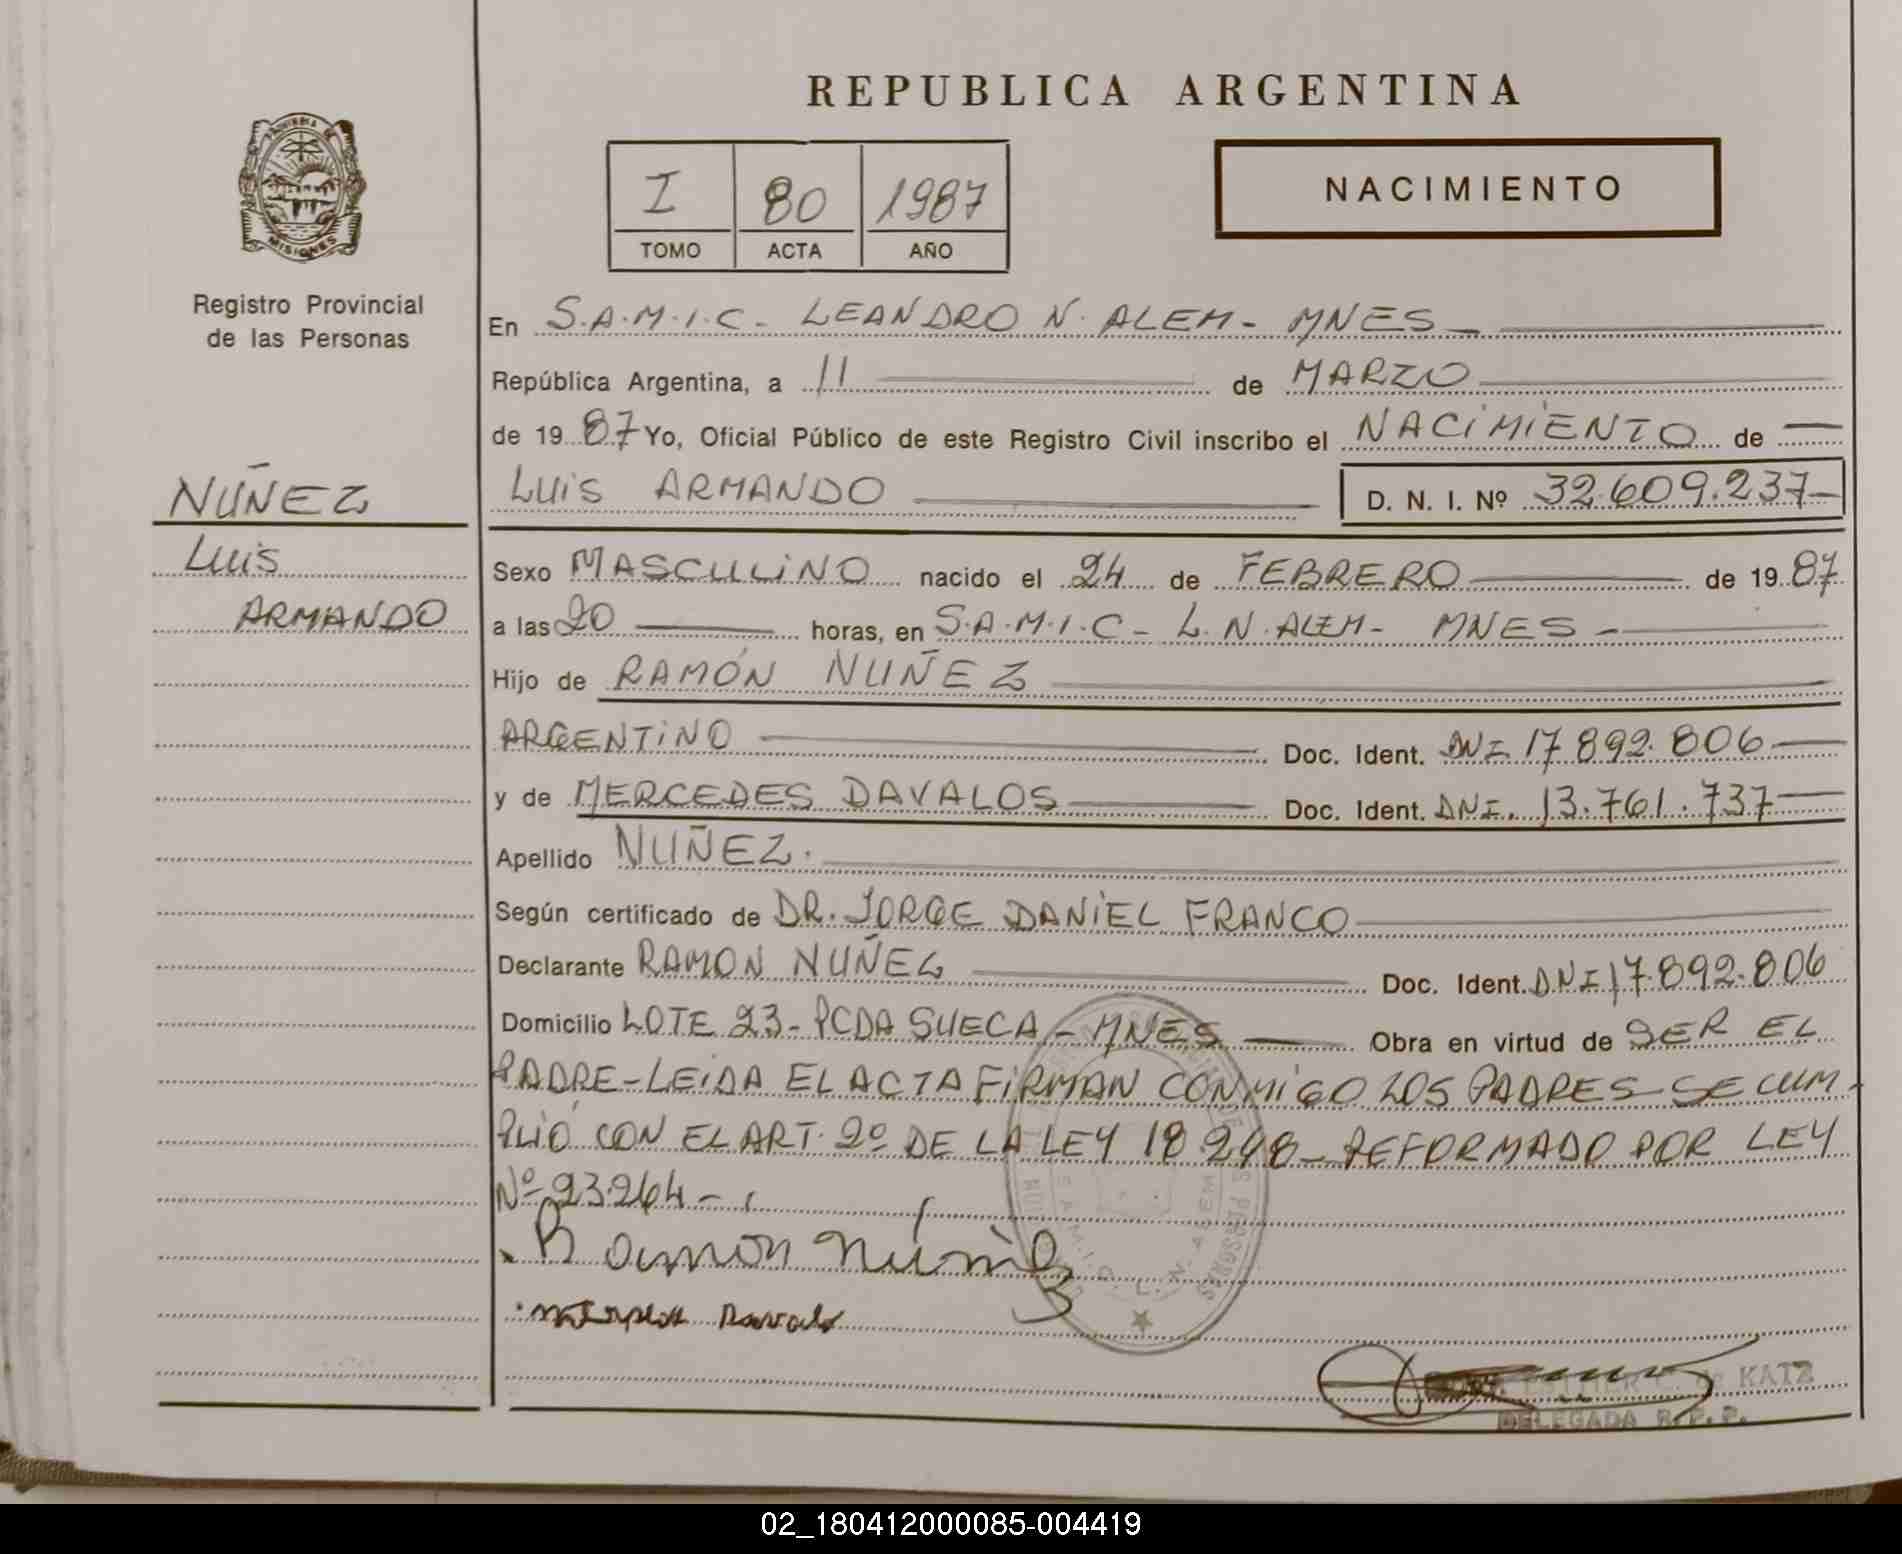 REPUBLICA ARGENTINA
NACIMIENTO
I 80 1987
TOMO ACTA AÑO
PROVINCIA DE
MISIONES
Registro Provincial
de las Personas
NUÑEZ
Luis
ARMANDO
En S.A.M.I.C. LEANDRO N. ALEM - MNES -
República Argentina, a 11 de MARZO
de 19 87 Yo, Oficial Público de este Registro Civil inscribo el NACIMIENTO de
LUIS ARMANDO D. N. I. Nº 32.609.237
Sexo MASCULINO nacido el 24 de FEBRERO de 19 87
a las 20 horas, en S.A.M.I.C - L.N. ALEM - MNES -
Hijo de RAMÓN NUÑEZ
ARGENTINO Doc. Ident. DNI 17892.806
y de MERCEDES DAVALOS Doc. Ident. DNI. 13.761.737
Apellido NUÑEZ.
Según certificado de DR. JORGE DANIEL FRANCO
Declarante RAMON NUÑEZ Doc. Ident. DNI 17.892.806
Domicilio LOTE 23 - PCDA SUECA - MNES Obra en virtud de SER EL
PADRE - LEIDA EL ACTA FIRMAN CONMIGO LOS PADRES SE CUM-
PLIÓ CON EL ART. 2º DE LA LEY 18.248 - REFORMADO POR LEY
Nº 23.264 -
Ramón Núñez
Davalo
KATZ
DELEGADA R. P. P.
02_180412000085-004419